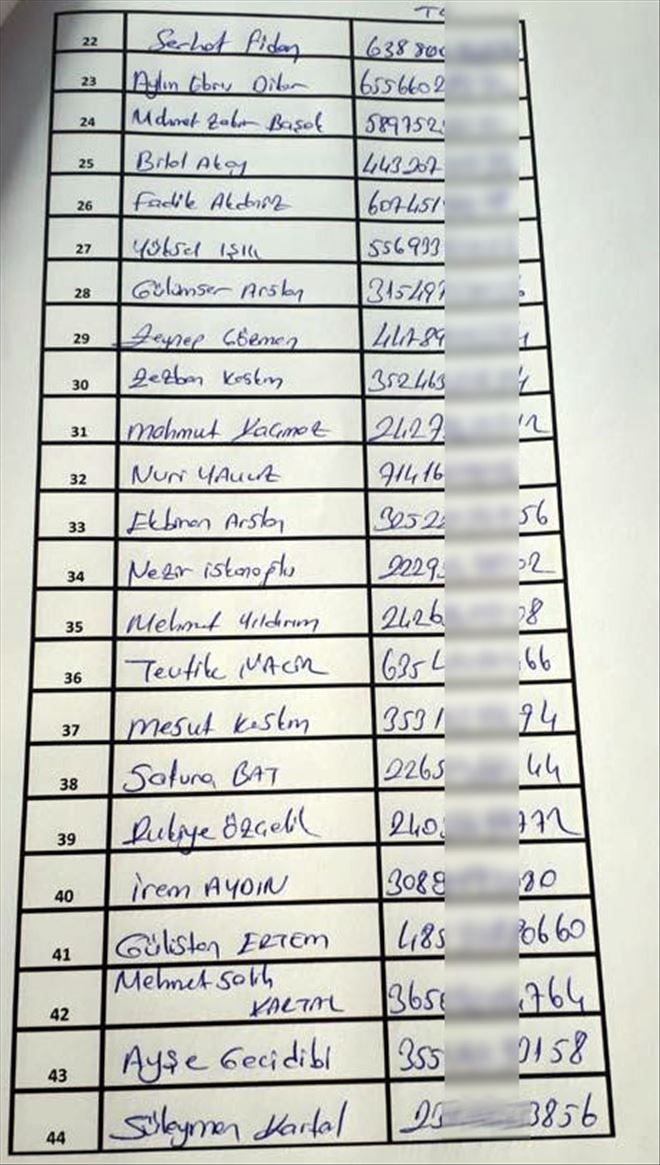 TC
22 Serhat Fidan 638800
23 Aylin Ebru Diler 6556602
24 Mehmet Zahir Başak 589752
25 Bilal Akay 443207
26 Fadik Akdeniz 607451
27 Yüksel IŞIK 556933
28 Gülenser Arslan 315497
29 Zeynep Gözmen 44789
30 Zezban Keskin 352463
31 Mahmut Kaçmaz 2427 12
32 Nuri YAVUZ 71416
33 Arslan 3052 56
34 Nezir iskanoğlu 2229 02
35 Mehmet Yıldırım 2426 08
36 Tevfik 635 66
37 Mesut Keskin 3531 94
38 Satuna BAT 2265 44
39 Rukiye Özçelik 240 772
40 İrem AYDIN 3088 80
41 Gülistan ERTEM 485 0660
42 Mehmet Salih
KARTAL 365 764
43 Ayşe Gecidibi 355 0158
44 Süleyman Kartal 25 3856